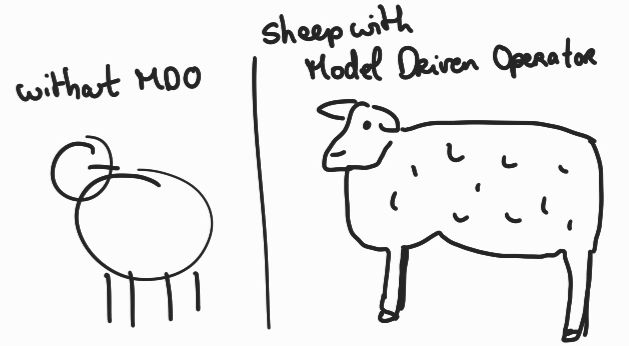 without MDO
Sheep with
Model Driven Operator